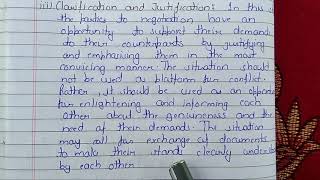 iii) Clarification and Justification: In this s
the parties to negotiation have an
opportunity to support their demands
to their counterparts by justifying
and emphasising them in the most
convincing manner. The situation should
not be used as platform for conflict.
Rather, it should be used as an opportu
for enlightening and informing each
other about the genuineness and the
need of their demands. The situation
may call for exchange of documents
to make their stands clearly unders
by each other.